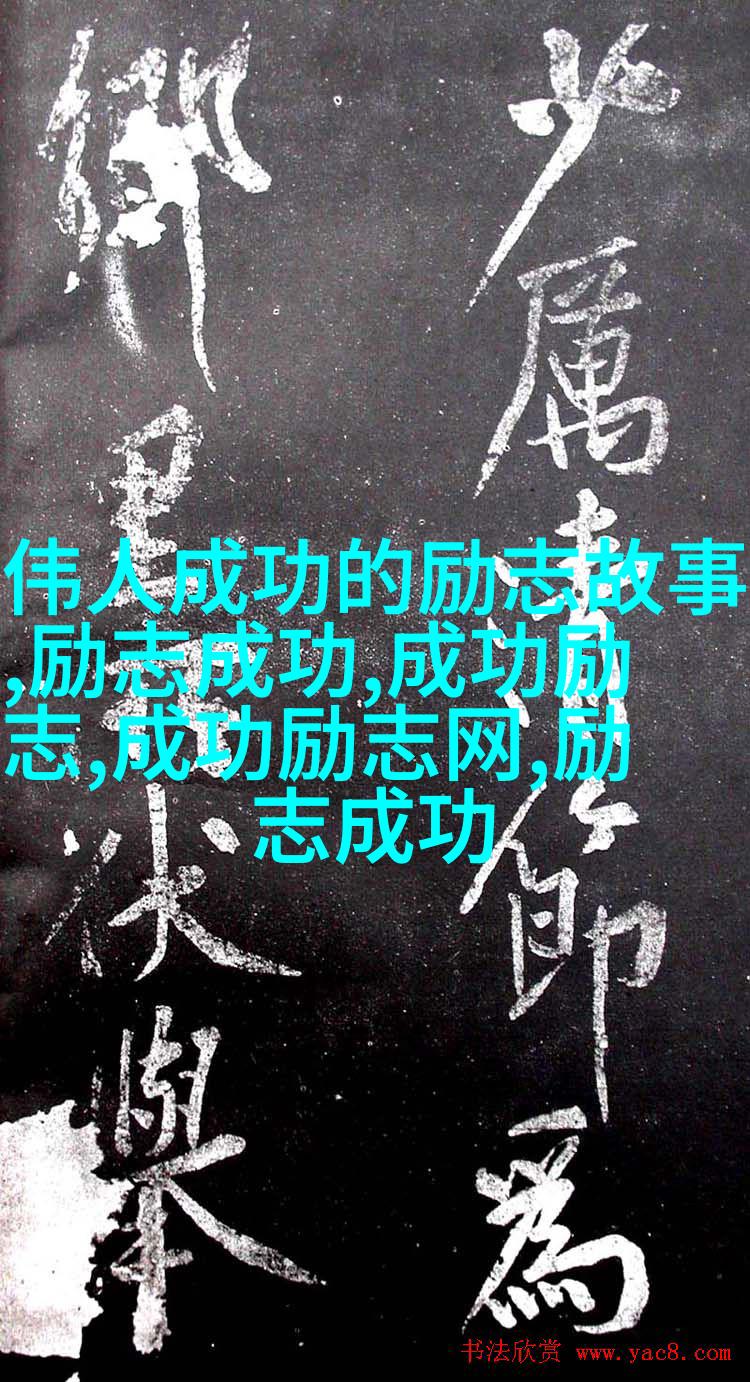 少厲清節為
鄉里伏舉
伟人成功的励志故事
,励志成功,成功励
志,成功励志网,励
志成功
书法欣赏 www.yac8.com